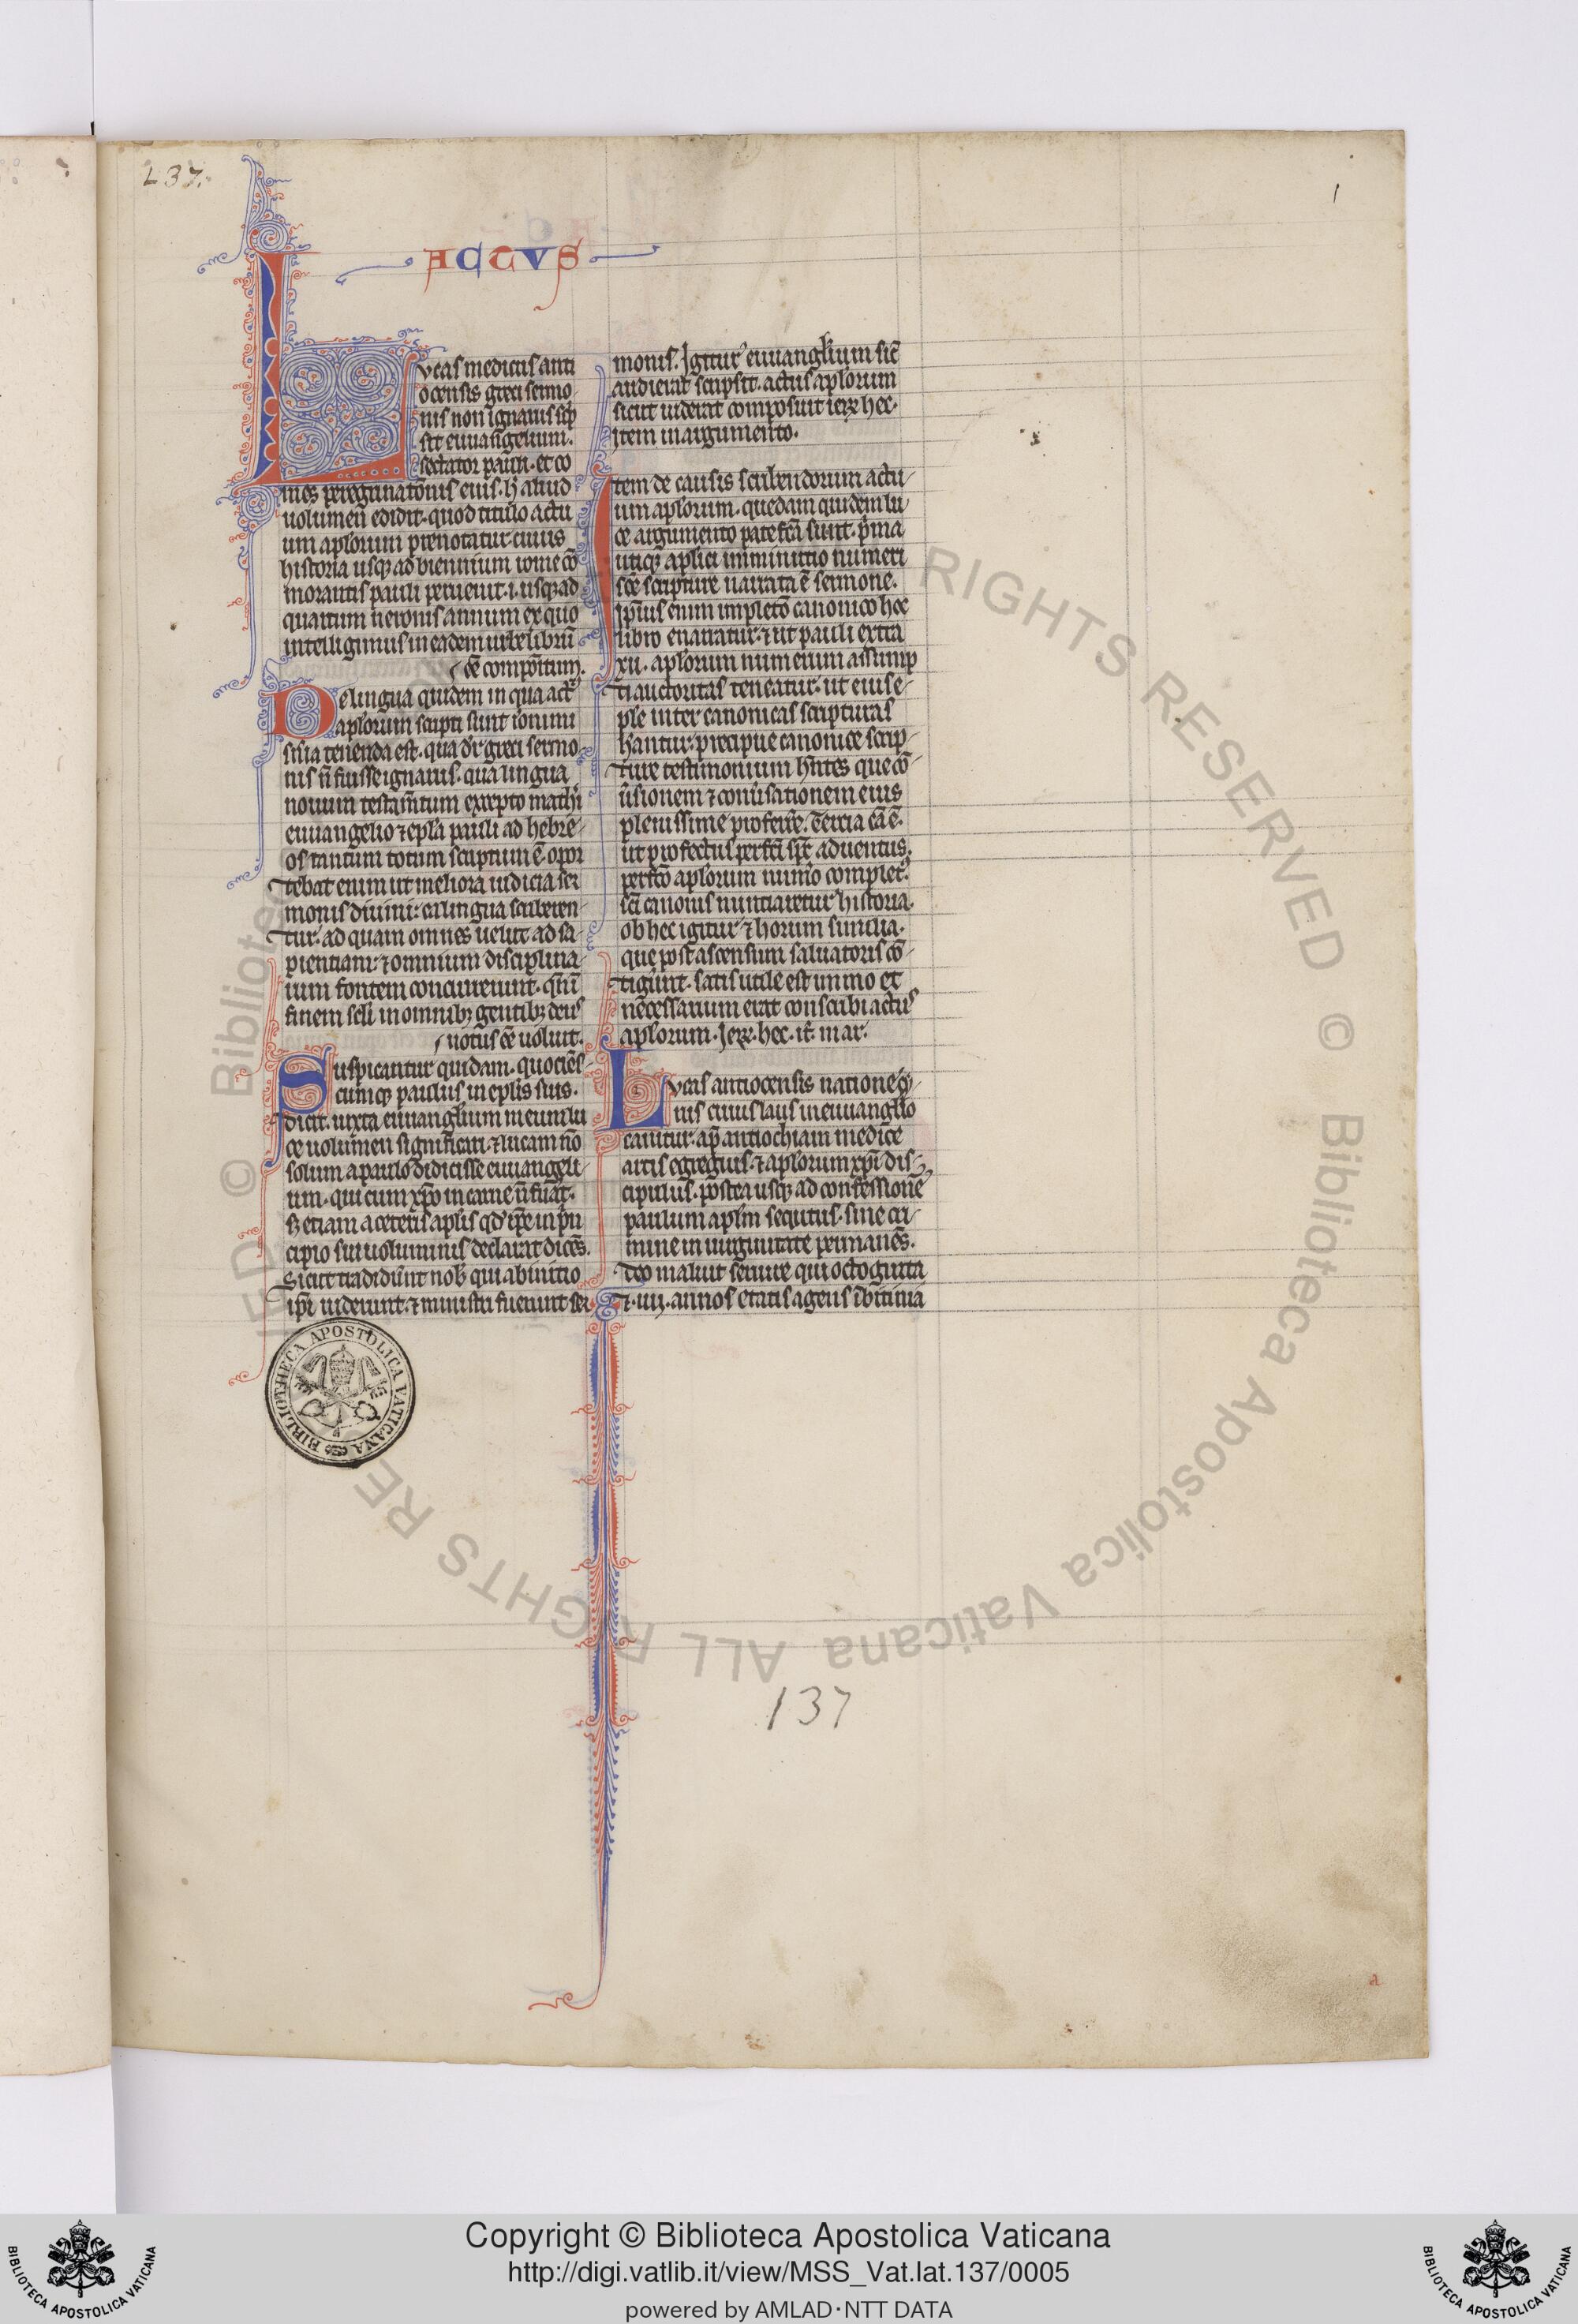 137.
1
ACTVS
Lvcas medicus anti
ocensis greci sermo
nis non ignarus scp
sit euuangelium.
sectator pauli. et co
mes peregrinatōnis eius. h̄ aliud
uolumen edidit. quod titulo actu
um aplorum prenotatur. cuius
historia usq; ad biennium rome cō
morantis pauli peruenit. i. usq; ad
quartum neronis annum ex quo
intelligimus in eadem urbe librū
ēē compoītum.
De lingua quidem in qua act
aplorum scripti sunt ieronimi
sn̄ia tenenda est. qua dr̄ greci sermo
nis n̄ fuisse ignarus. qua lingua
nouum testam̄tum excepto mathī
euuangelio ⁊ epl̄a pauli ad hebre
os tantum totum scriptum ē. opor
tebat enim ut meliora iudicia ser
monis diuini: ea lingua scriberen
tur. ad quam omnes uelut ad sa
pientiam: ⁊ omnium disciplina
rum fontem concurrerunt. qn̄m̄
finem scl̄i in omnib; gentib; deus
notus ēē uoluit.
Suspicantur quidam. quociēs
cumq; paulus in epl̄is suis.
dicit. iuxta euuanglium meum lu
ce uolumen significari. ⁊ lucam nō
solum a paulo didicisse euuangeli
um. qui cum xp̄o in carne n̄ fuāt.
S; etiam a ceteris aplis qd̄ ip̄e in pn
cipio sui uoluminis declarat dicēs.
Sicut tradidūnt nob̄ qui ab initio
ip̄i uiderunt. ⁊ ministri fuerunt ser
monis. Igitur euuanglium sic̄
audierat scripsit. actus aplorum
sicut uiderat composuit ierȝ hec.
Item in argumento.
Item de causis scribendorum actu
um aplorum. quedam quidem lu
ce argumento patefc̄a sunt. prima
utiq; aplici imminutio numeri
sc̄e scripture narrata ē sermone.
Ip̄ius enim impletō canonico hoc
libro enarratur. ⁊ ut pauli extra
xii. aplorum numerum assump
ti auctoritas teneatur. ut eius e
ple inter canonicas scripturas
hantur. precipue canonice scrip
ture testimonium hn̄tes que cō
ūsionem ⁊ conūsationem eius
plenissime proferre. Tercia cā ē.
ut profectus perfc̄i sp̄c aduentus.
perfc̄o aplorum num̄o complet̄.
sc̄i canonis nuntiaretur historia.
ob hec igitur ⁊ horum similia.
que post ascensum saluatoris cō
tigūnt. satis utile est immo et
necessarium erat conscribi actus
aplorum. Ierȝ. hec. it̄. mar.
Lvcas antiocensis natione sy
rus cuius laus in euuanglio
canitur. ap̄ antiochiam medice
artis egregius. ⁊ aplorum xp̄i dis
cipulus. postea usq; ad confessionē
paulum aplm̄ sequtus. sine cri
mine in uirginitate permanēs.
deo maluit seruire qui octoginta
⁊. iiij. annos etatis agens ī bitinia
BIBLIOTHECA APOSTOLICA VATICANA
137
a
© Biblioteca Apostolica Vaticana ALL RIGHTS RESERVED
Copyright © Biblioteca Apostolica Vaticana
http://digi.vatlib.it/view/MSS_Vat.lat.137/0005
powered by AMLAD·NTT DATA
BIBLIOTECA APOSTOLICA VATICANA
BIBLIOTECA APOSTOLICA VATICANA